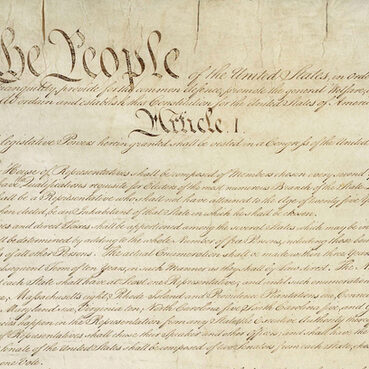 the People of the United States, in orde
Tranquility, provide for the common defence, promote the general Welfare, a
ordain and establish this Constitution for the United States of Americ
Article. I.
Legislative Powers herein granted shall be vested in a Congress of the United
House of Representatives shall be composed of Members chosen every second
have Qualifications requisite for Electors of the most numerous Branch of the State
shall be a Representative who shall not have attained to the Age of twenty five Y
when elected, be an Inhabitant of that State in which he shall be chosen.
and direct Taxes shall be apportioned among the several States which may be in
be determined by adding to the whole Number of free Persons, including those boun
of all other Persons. The actual Enumeration shall be made within three Years
subsequent Term of ten Years, in such Manner as they shall by Law direct. The N
each State shall have at Least one Representative; and until such enumeration
Massachusetts eight, Rhode-Island and Providence Plantations one, Connec
Maryland six, Virginia ten, North Carolina five, South Carolina five, and G
happen in the Representation from any State, the Executive Authority thereof
of Representatives shall chuse their Speaker and other Officers; and shall have the
Senate of the United States shall be composed of two Senators from each State, chos
one Vote.